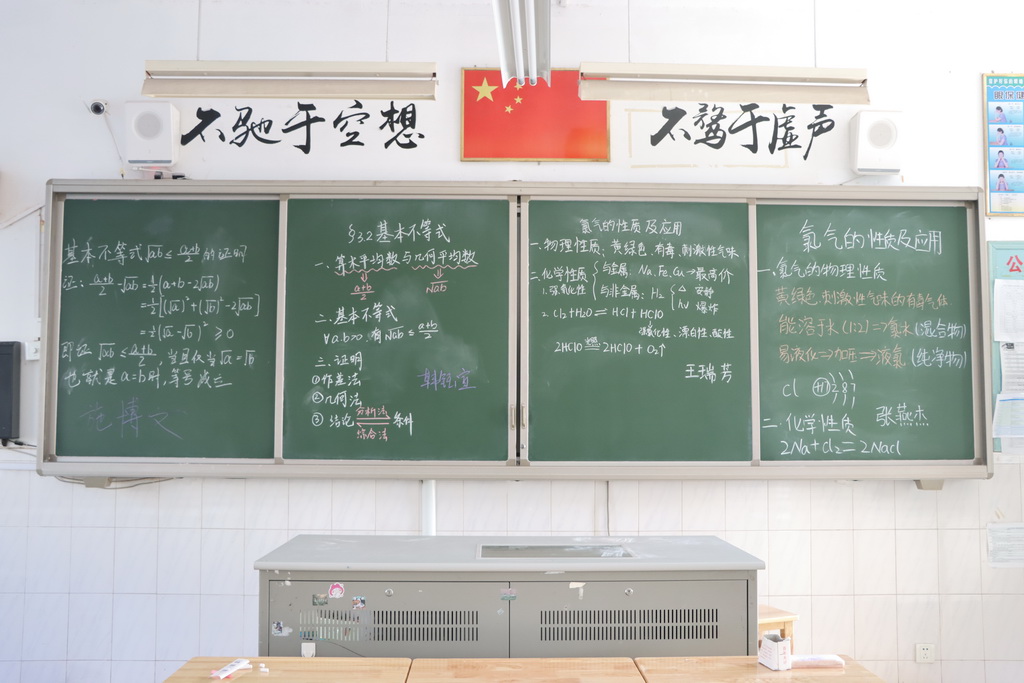 不驰于空想
不骛于虚声
基本不等式√ab ≤ (a+b)/2 的证明
证: (a+b)/2 - √ab = 1/2(a+b-2√ab)
= 1/2[(√a)²+(√b)²-2√ab]
= 1/2(√a-√b)² ≥ 0
即证 √ab ≤ (a+b)/2, 当且仅当√a=√b
也就是a=b时, 等号成立
§3.2 基本不等式
一、算术平均数与几何平均数
(a+b)/2 √ab
二、基本不等式
∀a.b>0. 有√ab ≤ (a+b)/2
三、证明
①作差法
②几何法
③ 结论 分析法 条件
综合法
氯气的性质及应用
一.物理性质: 黄绿色. 有毒. 刺激性气味
二.化学性质 与金属: Na, Fe, Cu→最高价
1.强氧化性 与非金属: H₂ △ 安静
hν 爆炸
2. Cl₂+H₂O = HCl+HClO
强氧化性、漂白性、酸性
2HClO 光照 2HClO + O₂↑
王瑞芳
氯气的性质及应用
一、氯气的物理性质
黄绿色 刺激性气味的有毒气体
能溶于水(1:2)⇒氯水(混合物)
易液化⇒加压⇒液氯(纯净物)
Cl +17 2 8 7
二.化学性质 张燕杰
2Na+Cl₂=2NaCl
公